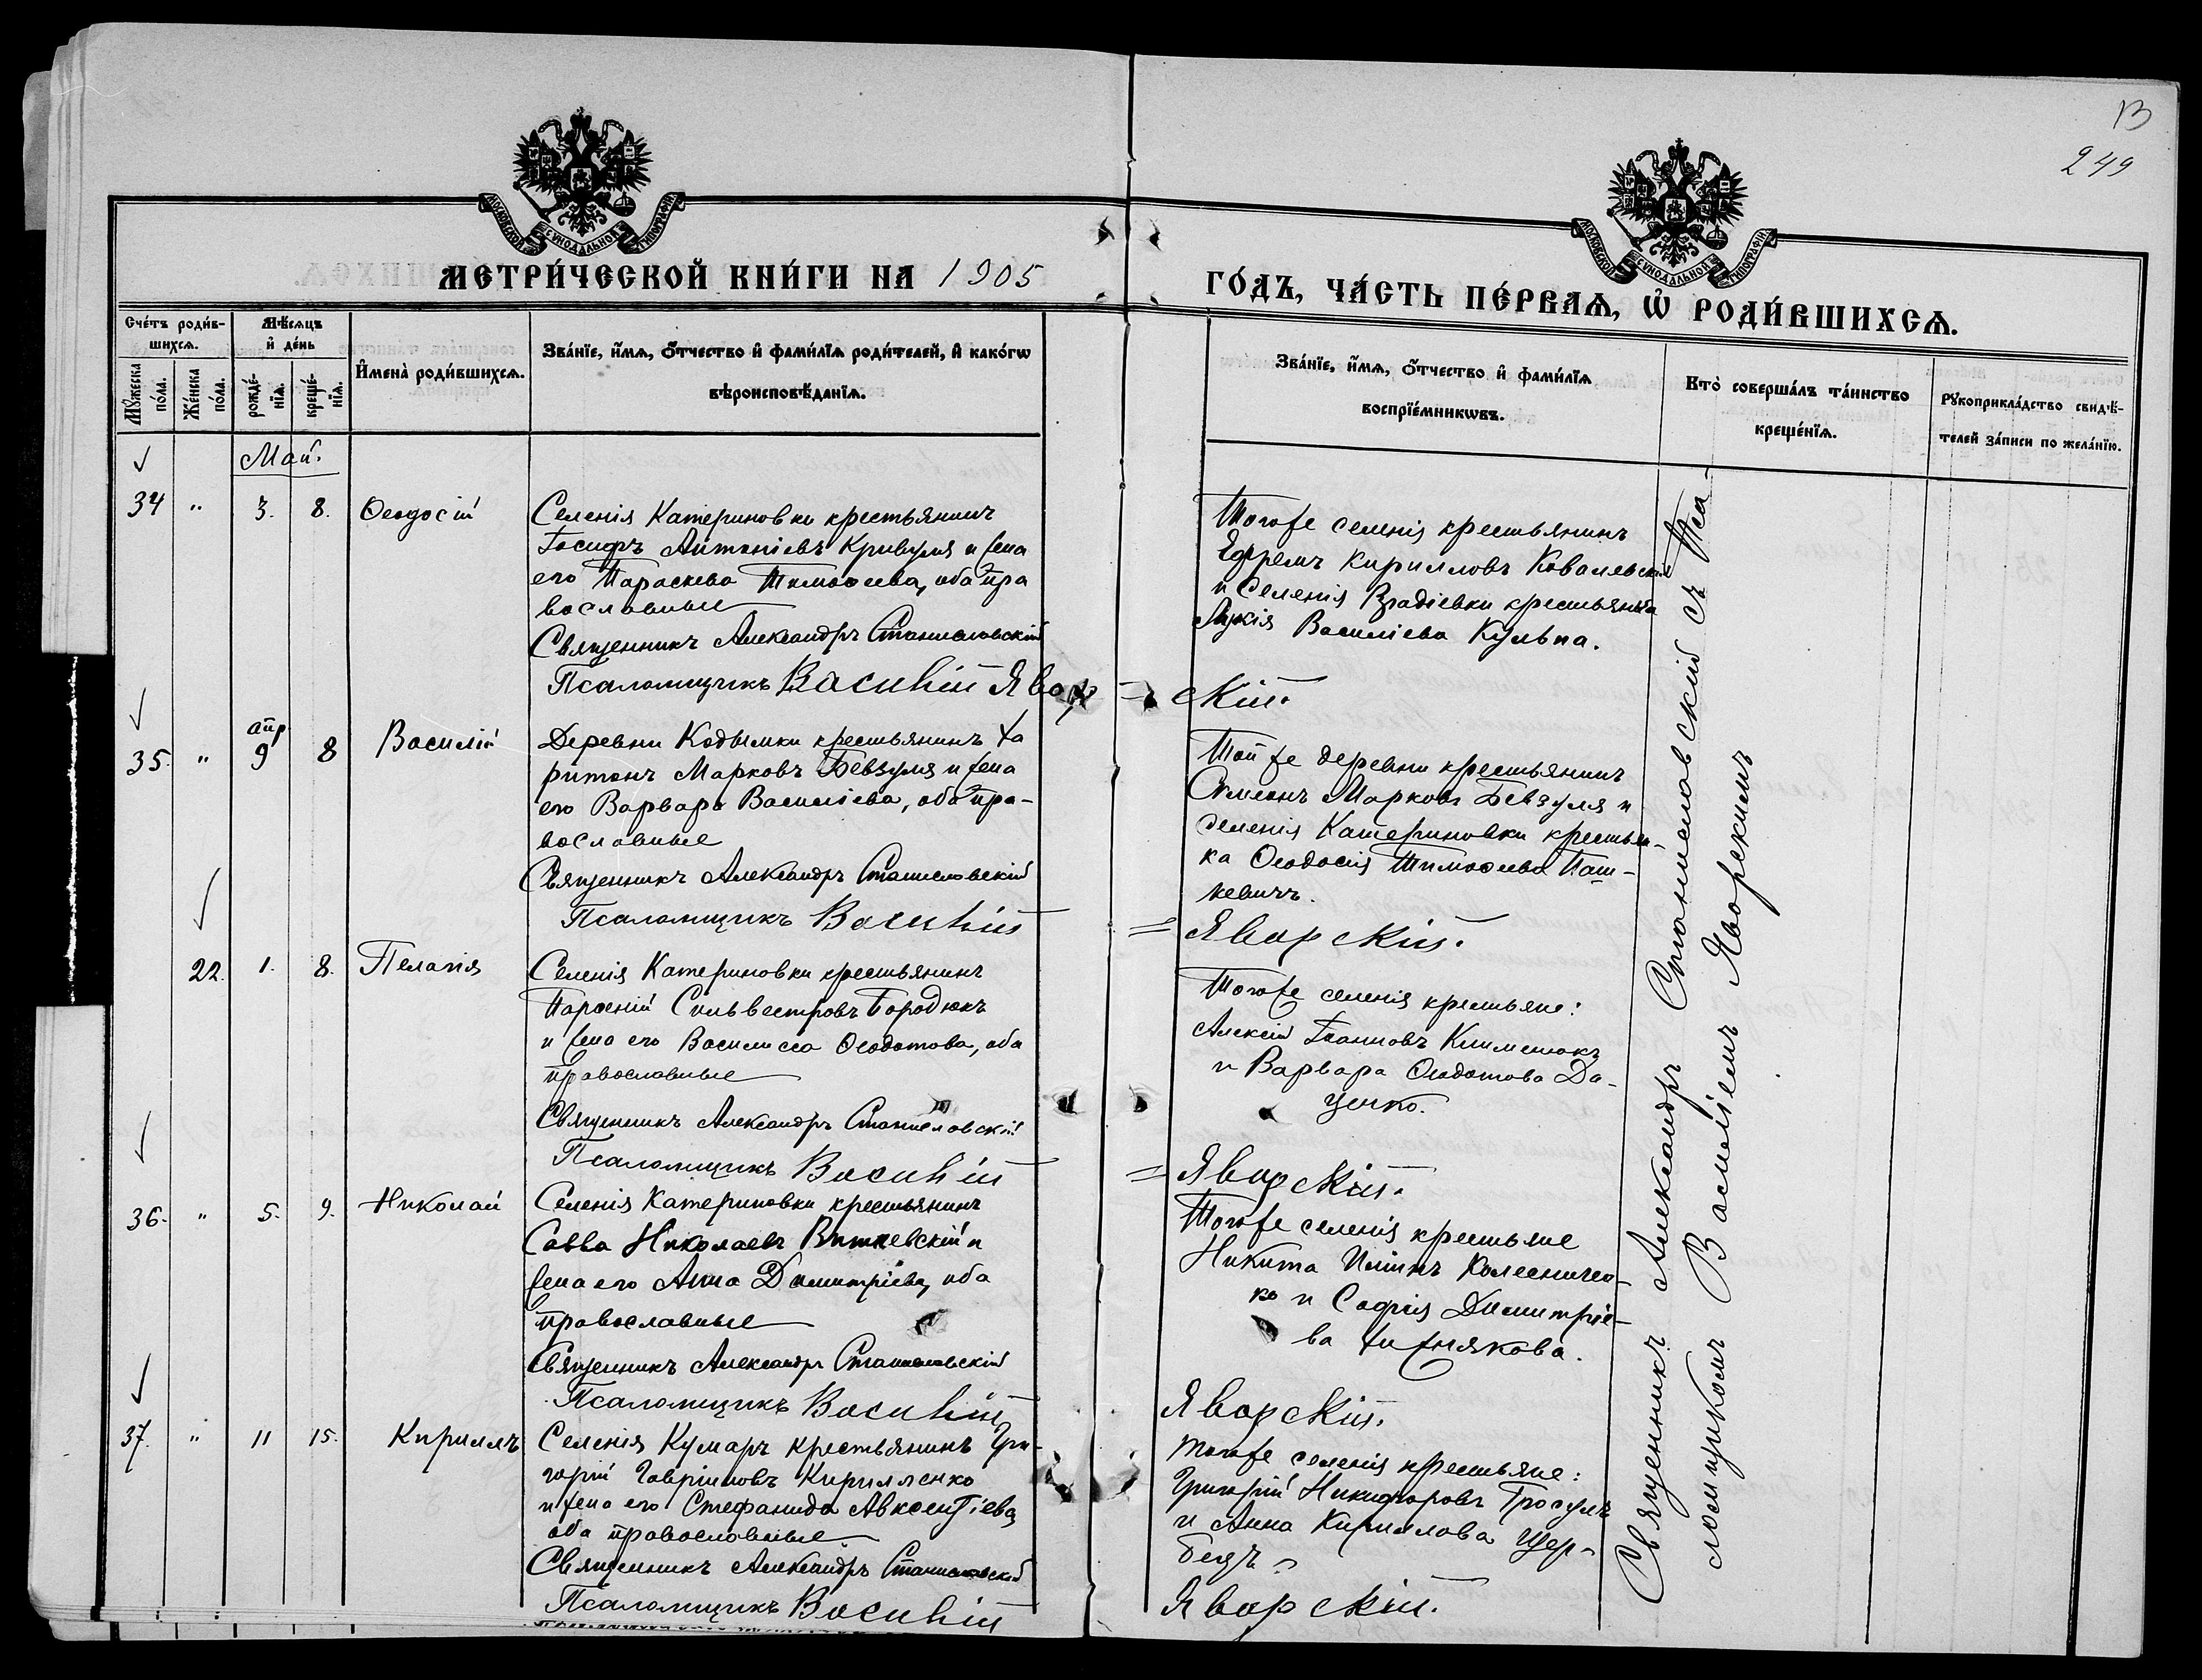 13
249
МОСКОВСКОЙ СѴНОДАЛЬНОЙ ТИПОГРАФІИ
МОСКОВСКОЙ СѴНОДАЛЬНОЙ ТИПОГРАФІИ
МЕТРИ́ЧЕСКОЙ КНИ́ГИ НА 1905
ГО́ДЪ, ЧА́СТЬ ПЕ́РВАѦ, Ѡ҆ РОДИ́ВШИХСѦ.
Сче́тъ роди́в-
шихсѧ.
Мꙋ́жеска по́ла.
Же́нска по́ла.
Мѣ́сѧцъ
и҆ де́нь
рожде́-
нїѧ.
креще́-
нїѧ.
И҆мена̀ роди́вшихсѧ.
Зва́нїе, и҆́мѧ, ѻ҆́тчество и҆ фами́лїѧ роди́телей, и҆ како́гѡ
вѣроисповѣ́данїѧ.
Зва́нїе, и҆́мѧ, ѻ҆́тчество и҆ фами́лїѧ
воспрїе́мникѡвъ.
Кто̀ соверша́лъ та́инство
креще́нїѧ.
Рꙋкоприкла́дство свидѣ́-
телей за́писи по жела́нїю.
Май.
34 " 3. 8. Ѳеодосій
Селенія Катериновки крестьянинъ
Іосифъ Антоніевъ Кривуля и жена
его Параскева Тимоѳеева, оба пра
вославные
Священникъ Александръ Станиславскій
Псаломщикъ Василій Явор
Тогоже селенія крестьянинъ
Ефремъ Кирилловъ Ковалевскій
и Селенія Врадіевки крестьянка
Лукія Василіева Кульпа.
скій.
35. " апр 9 8 Василій
Деревни Кодымки крестьянинъ Ха
ритонъ Марковъ Бевзуля и жена
его Варвара Василіева, оба пра-
вославные
Священникъ Александръ Станиславскій
Псаломщикъ Василій
Той же деревни крестьянинъ
Симеонъ Марковъ Бевзуля и
селенія Катериновки крестьян-
ка Ѳеодосія Тимоѳеева Паш-
кевичъ.
= Яворскій.
22. 1. 8. Пелагія
Селенія Катериновки крестьянинъ
Парѳеній Сильвестровъ Бородюкъ
и жена его Василисса Ѳеодотова, оба
православные
Священникъ Александръ Станиславскій
Псаломщикъ Василій
Тогоже селенія крестьяне:
Алексій Іоанновъ Клименюкъ
и Варвара Ѳеодотова Да-
ценко.
= Яворскій.
36. " 5. 9. Николай
Селенія Катериновки крестьянинъ
Савва Николаевъ Витневскій и
жена его Анна Димитріева, оба
православные
Священникъ Александръ Станиславскій
Псаломщикъ Василій
Тогоже селенія крестьяне
Никита Иліинъ Колесничен-
ко и Софія Димитріе-
ва Хижнякова.
Яворскій.
37. " 11 15. Кириллъ
Селенія Кумаръ крестьянинъ Гри-
горій Гавріиловъ Кирилленко
и жена его Стефанида Авксентіева,
оба православные
Священникъ Александръ Станиславскій
Псаломщикъ Василій
Тогоже селенія крестьяне:
Григорій Никифоровъ Тросулъ
и Анна Кириллова Щер-
бецъ
Яворскій.
Священникъ Александръ Станиславскій съ Пса-
ломщикомъ Василіемъ Яворскимъ